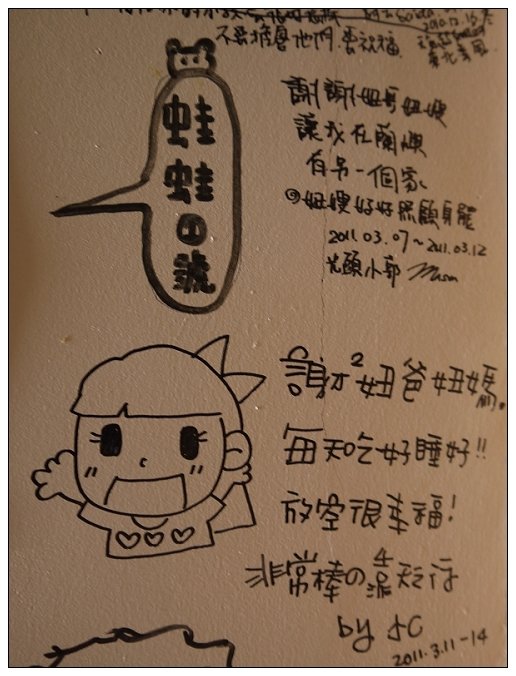 2010.12.16
不要擔憂他們.要祝福
蛙
蛙
口
號
謝謝妞哥妞嫂
讓我在蘭嶼
有另一個家
妞嫂好好照顧身體
2011.03.07~2011.03.12
光頭小郭
謝謝²妞爸妞媽.
每天吃好睡好!!
放空很幸福!
非常棒の4天行
by JC
2011.3.11-14